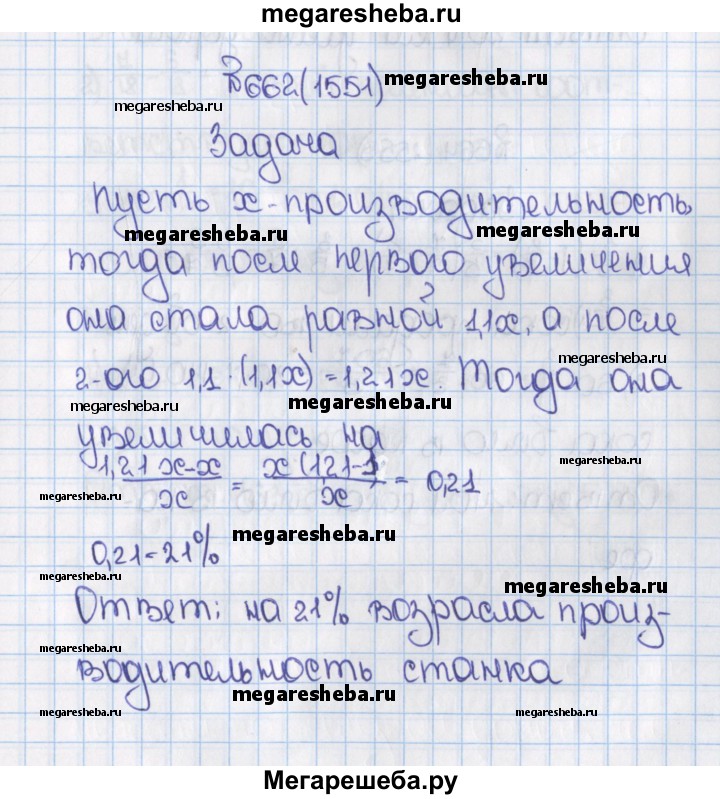 megaresheba.ru
№662(1551) megaresheba.ru
megaresheba.ru
Задача
Пусть х-производительность,
megaresheba.ru megaresheba.ru
тогда после первого увеличения
она стала равной 1,1х, а после
megaresheba.ru
2-ого 1,1·(1,1х)=1,21х. Тогда она
megaresheba.ru megaresheba.ru
увеличилась на
(1,21х-х)/х = х(1,21-1)/х = 0,21
megaresheba.ru
0,21=21%
megaresheba.ru
megaresheba.ru megaresheba.ru
Ответ: на 21% возрасла произ-
megaresheba.ru
водительность станка
megaresheba.ru
megaresheba.ru megaresheba.ru
Мегарешеба.ру